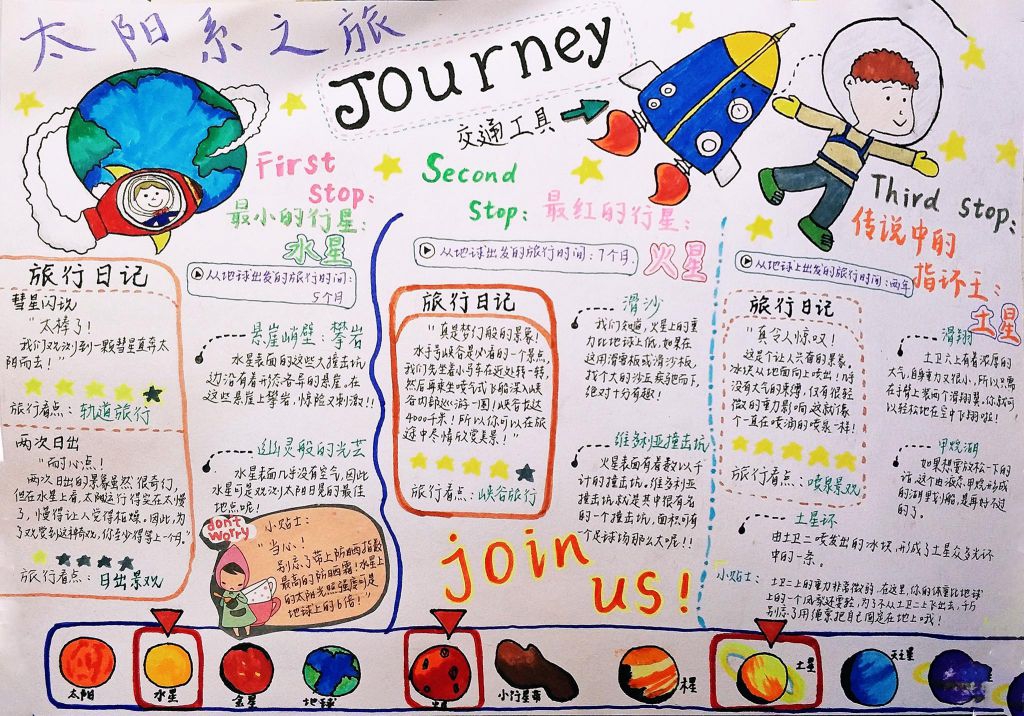 太阳系之旅
Journey
交通工具
First
Stop:
最小的行星:
水星
从地球出发的旅行时间:
5个月
旅行日记
彗星闪说
"太棒了!
我们观测到一颗彗星直奔太
阳而去!"
旅行看点: 轨道旅行
两次日出
"耐心点!
两次日出的景象虽然很奇幻,
但在水星上看,太阳运行得实在太慢
了,慢得让人觉得枯燥。因此,为
了观赏到这种奇观,你至少得等上一个月。"
旅行看点: 日出景观
悬崖峭壁:攀岩
水星表面的这些大撞击坑,
边沿有着形态各异的悬崖。在
这些悬崖上攀岩,惊险又刺激!!
幽灵般的光芒
水星表面几乎没有空气,因此
水星可是观测太阳日冕的最佳
地点呢!
don't
worry
小贴士:
"当心!
别忘了带上防晒指数
最高的防晒霜!水星上
的太阳光照强度可是
地球上的6倍!"
Second
Stop: 最红的行星:
火星
从地球出发的旅行时间:7个月.
旅行日记
"真是梦幻般的景象!
水手号峡谷是必看的一个景点,
我们先坐着小马车在近处转一转,
然后再乘坐喷气式飞船深入峡
谷内部巡游一圈!峡谷长达
4000千米!所以你可以在旅
途中尽情欣赏美景!"
旅行看点: 峡谷旅行
滑沙
我们知道,火星上的重
力比地球上低,如果在
这用滑雪板或滑沙板,
找个大的沙丘疾驰而下,
绝对十分有趣!
维多利亚撞击坑
火星表面有着数以千
计的撞击坑,维多利亚
撞击坑就是其中很有名
的一个撞击坑,面积可有
一个足球场那么大呢!!
join
us!
Third Stop:
传说中的
指环王:
土星
从地球上出发的旅行时间:两年
旅行日记
"真令人惊叹!
这是个让人兴奋的景象,
冰块从地面向上喷出!
没有大气的束缚,仅有很轻
微的重力影响,这就像
一个直在喷涌的喷泉一样!
旅行看点: 喷泉景观
滑翔
土卫六上有着浓厚的
大气,自身重力又很小,所以只需
在手臂上装两个滑翔翼,你就可
以轻松地在空中飞翔啦!
甲烷湖
如果想要放松一下的
话,在由液态甲烷形成
的湖里划船,是再好不过
的了。
土星环
由土卫二喷发出的冰块,形成了土星众多光环
中的一条。
小贴士: 土卫二上的重力非常微弱,在这里,你的体重比地球
上的一个风筝还要轻,为了不从土卫二上飞出去,千万
别忘了用绳索把自己固定在地上哦!
太阳
水星
金星
地球
小行星带
木星
土星
天王星